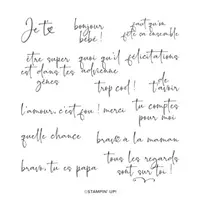 Je te
bonjour
bébé !
faut qu'on
fête ça ensemble
être super
est dans tes
gènes
quoi qu'il
advienne
félicitations
trop cool !
de
t'avoir
l'amour, c'est fou !
merci
tu comptes
pour moi
quelle chance
bravo à la maman
bravo, tu es papa
tous les regards
sont sur toi !
©STAMPIN' UP!